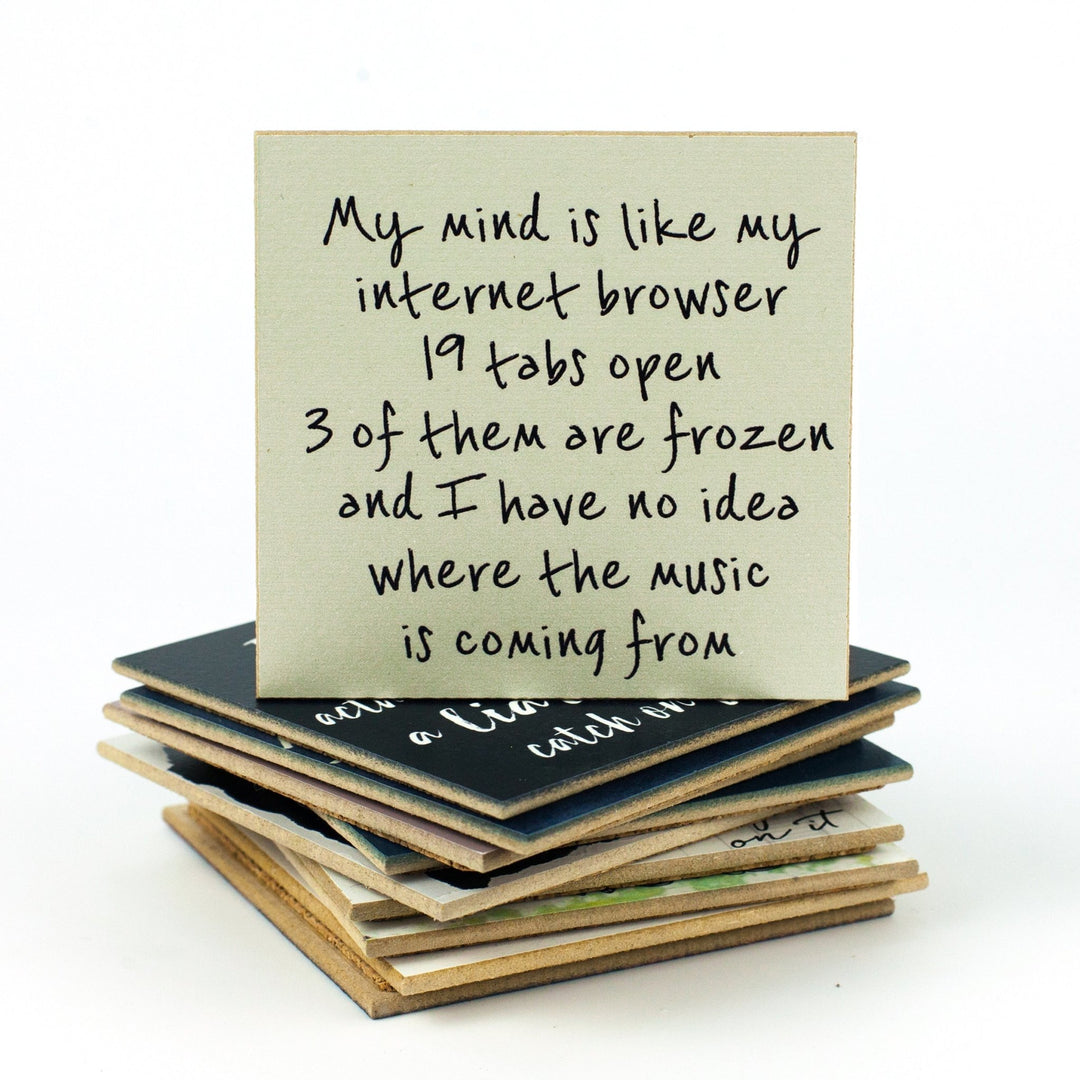 My mind is like my
internet browser
19 tabs open
3 of them are frozen
and I have no idea
where the music
is coming from
a
catch on
on it